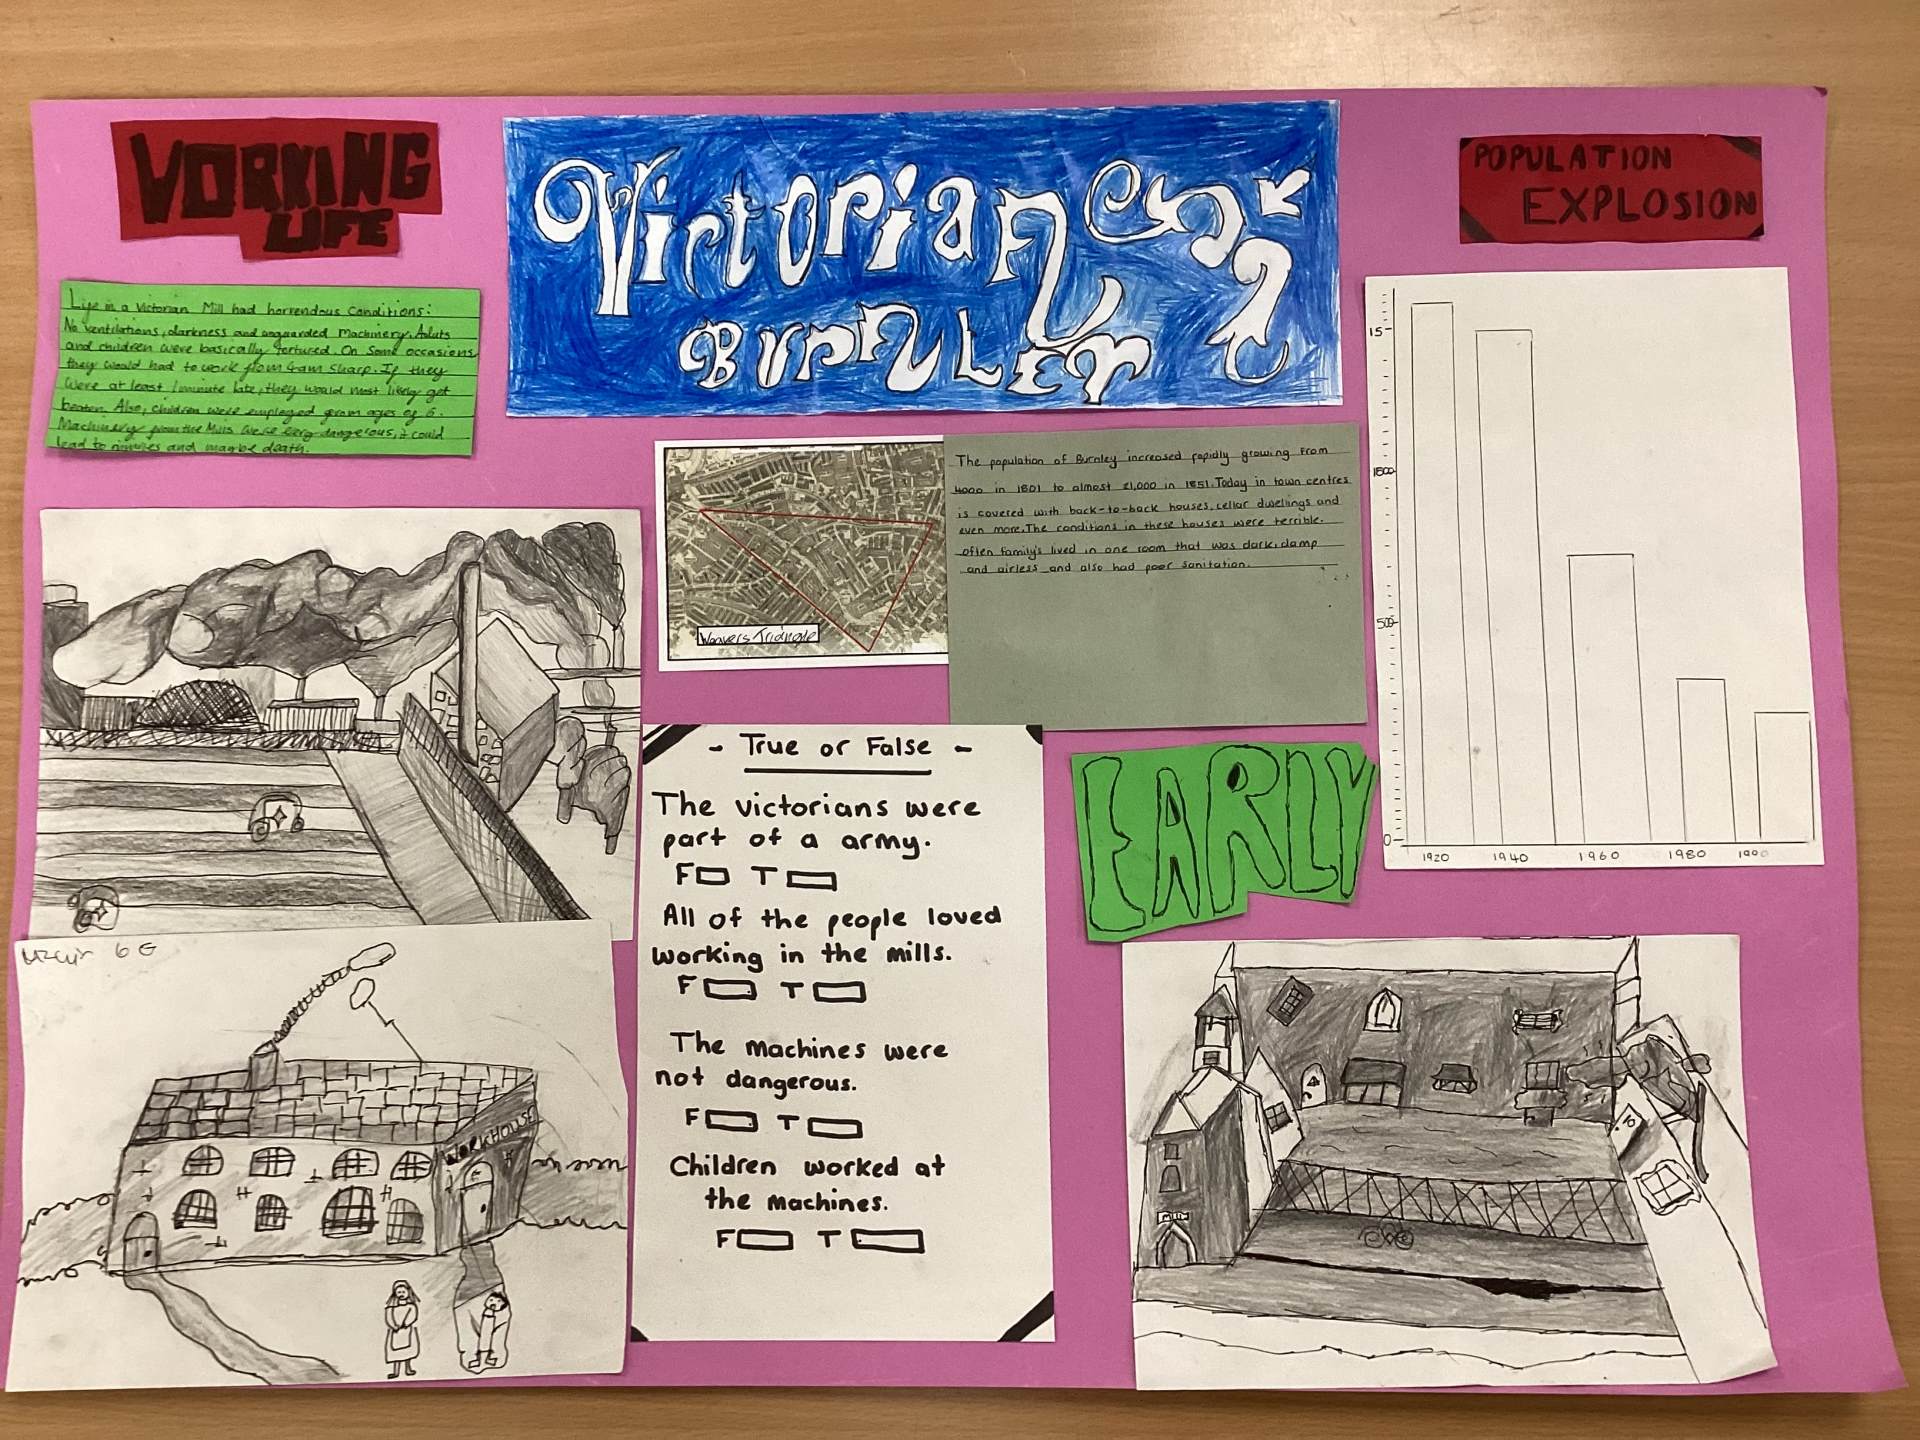 VORKING
LIFE
Life in a Victorian Mill had horrendous conditions:
No ventilations, darkness and unguarded Machinery. Adults
and children were basically tortured. On some occasions
they would had to work from 6am sharp. If they
were at least 1 minute late, they would most likely get
beaten. Also, children were employed from ages of 6.
Machinery from the Mills were very dangerous, it could
lead to injuries and maybe death.
Victorian
BURNLEY
POPULATION
EXPLOSION
Weavers Triangle
The population of Burnley increased rapidly growing from
4000 in 1801 to almost 21,000 in 1851. Today in town centres
is covered with back-to-back houses, cellar dwellings and
even more. The conditions in these houses were terrible.
often family's lived in one room that was dark, damp
and airless and also had poor sanitation.
15
1000
500
0
1920 1940 1960 1980
- True or False -
The victorians were
part of a army.
F T
All of the people loved
working in the mills.
F T
The machines were
not dangerous.
F T
Children worked at
the machines.
F T
EARLY
6G
WORKHOUSE
MILL